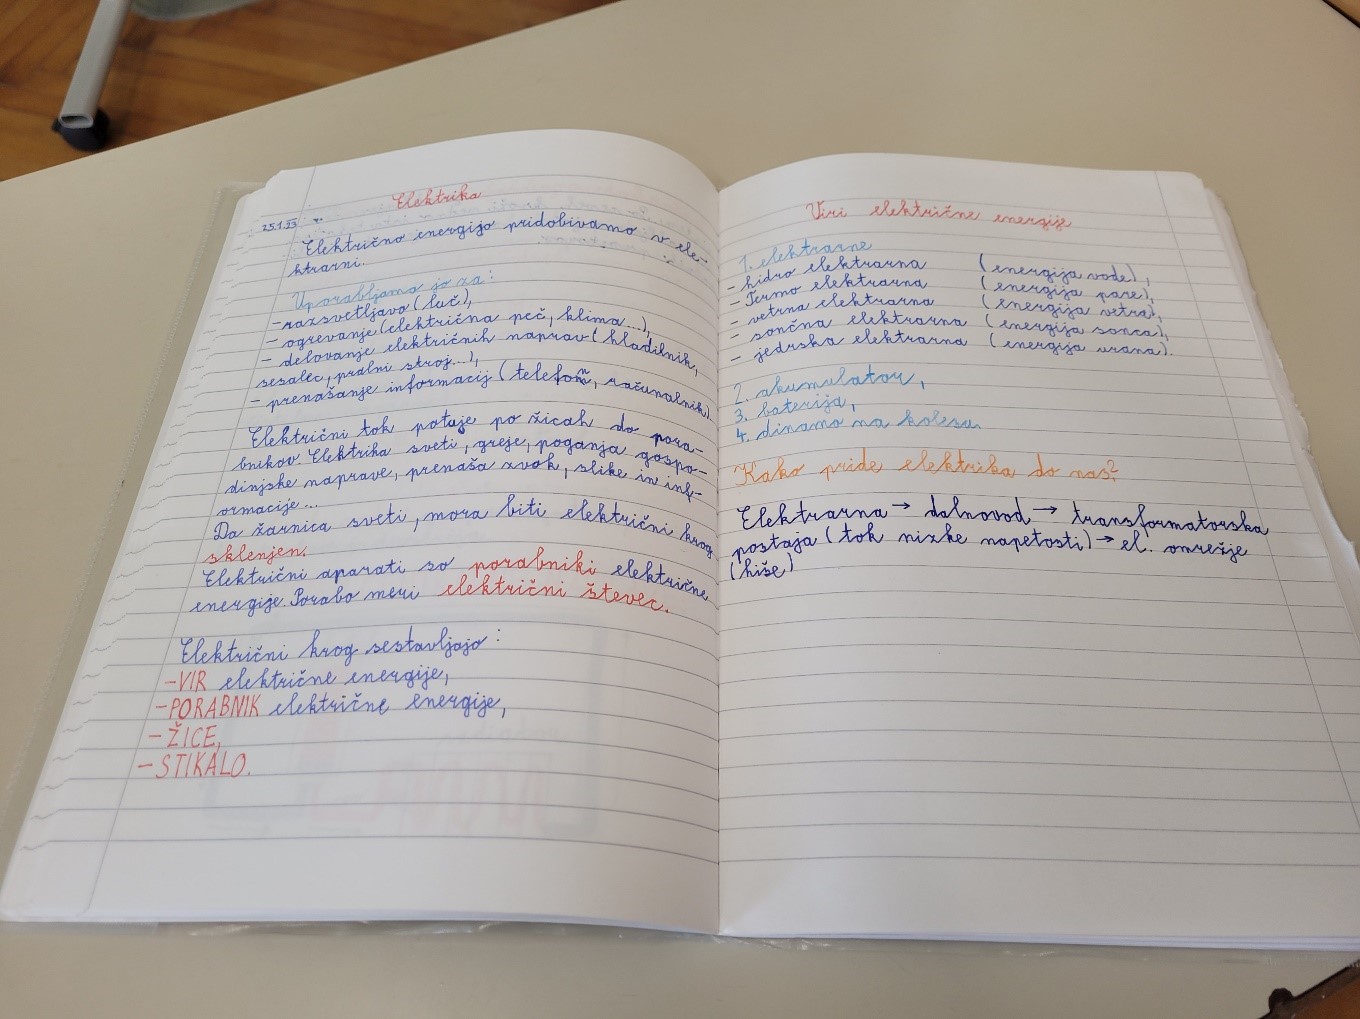 Elektrika
25.1.23
Električno energijo pridobivamo v ele-
ktrarni.
Uporabljamo jo za:
-razsvetljavo (luč),
- ogrevanje (električna peč, klima...),
- delovanje električnih naprav (hladilnik,
sesalec, pralni stroj...),
- prenašanje informacij (telefon, računalnik).
Električni tok potuje po žicah do pora-
bnikov. Elektrika sveti, greje, poganja gospo-
dinjske naprave, prenaša zvok, slike in inf-
ormacije...
Da žarnica sveti, mora biti električni krog
sklenjen.
Električni aparati so porabniki električne
energije. Porabo meri električni števec.
Električni krog sestavljajo:
-VIR električne energije,
-PORABNIK električne energije,
-ŽICE,
-STIKALO.
Viri električne energije
1. elektrarne
- hidro elektrarna (energija vode),
- Termo elektrarna (energija pare),
- vetrna elektrarna (energija vetra),
- sončna elektrarna (energija sonca),
- jedrska elektrarna (energija urana).
2. akumulator,
3. baterija,
4. dinamo na kolesu.
Kako pride elektrika do nas?
Elektrarna → dalnovod → transformatorska
postaja (tok nizke napetosti) → el. omrežje
(hiše)